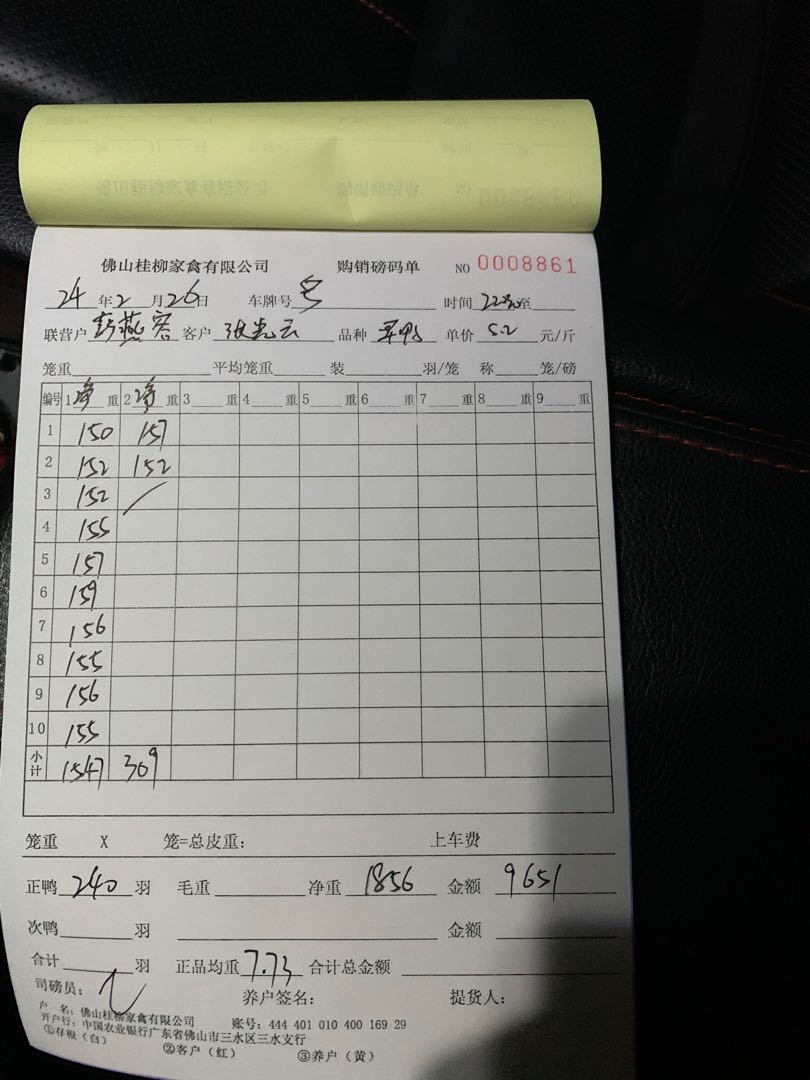 佛山桂柳家禽有限公司 购销磅码单 NO 0008861
24年2月26日 车牌号 时间 至
联营户 彭燕容 客户 张光云 品种 单价 5.2 元/斤
笼重 平均笼重 装 羽/笼 称 笼/磅
编号 1 净 重 2 净 重 3 重 4 重 5 重 6 重 7 重 8 重 9 重
1 150 157
2 152 152
3 152
4 155
5 157
6 159
7 156
8 155
9 156
10 155
小计 1547 309
笼重 X 笼=总皮重: 上车费
正鸭 240 羽 毛重 净重 1856 金额 9651
次鸭 羽 金额
合计 羽 正品均重 7.73 合计总金额
司磅员: 养户签名: 提货人:
户 名: 佛山桂柳家禽有限公司 账号: 444 401 010 400 169 29
开户行: 中国农业银行广东省佛山市三水区三水支行
①存根(白) ②客户(红) ③养户(黄)